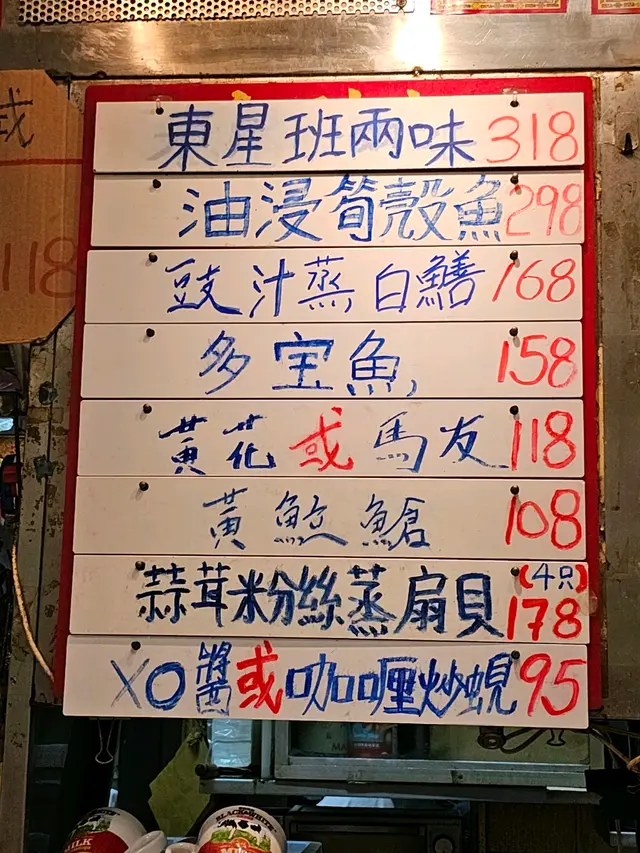 東星班兩味 318
油浸筍殼魚 298
豉汁蒸白鱔 168
多宝魚 158
黃花或馬友 118
黃𩶘鯧 108
蒜茸粉絲蒸扇貝 (4只) 178
XO醬或咖喱炒蜆 95
或
118
BLACK&WHITE
MILK